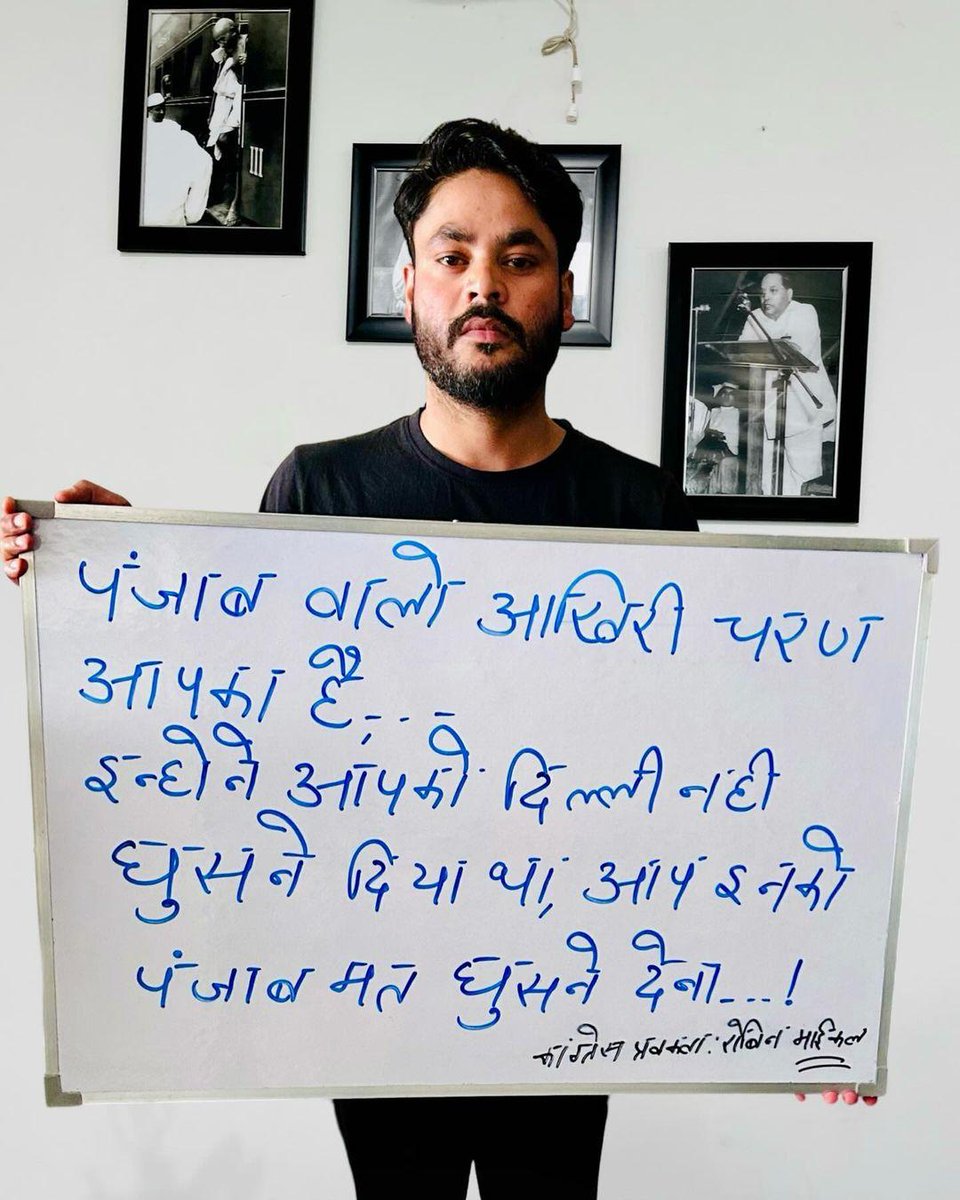 पंजाब वालो आखिरी चरण
आपका है...
इन्होने आपको दिल्ली नही
घुसने दिया था, आप इनको
पंजाब मत घुसने देना...!
कांग्रेस प्रवक्ता: रोबिन माईकल
III